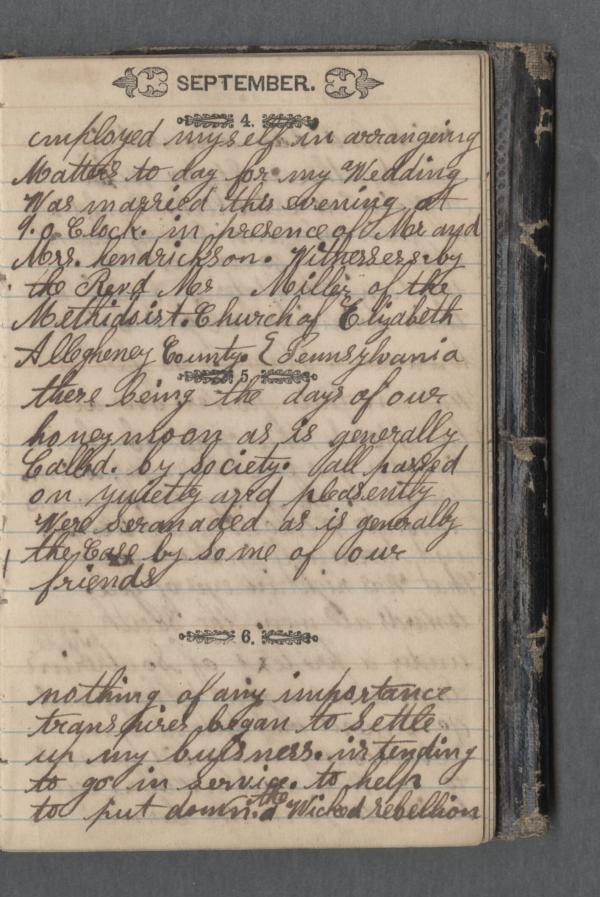 SEPTEMBER.
4.
employed myself in arrangeing
Matters to day for my Wedding
Was married this evening at
9. o Clock. in presence of Mr and
Mrs. hendrickson. Witnesses. by
the Revd Mr Miller of the
Methidsist. Church of Elizabeth
Allegheney County. Pennsylvania
5.
there being the days of our
honeymoon as is generally
Called. by society. all passed
on quietly and pleasently
Were seranaded as is generally
the Case by some of our
friends
6.
nothing of any importance
transpires began to Settle
up my buisness. intending
to go in service. to help
to put down. the Wicked rebellion